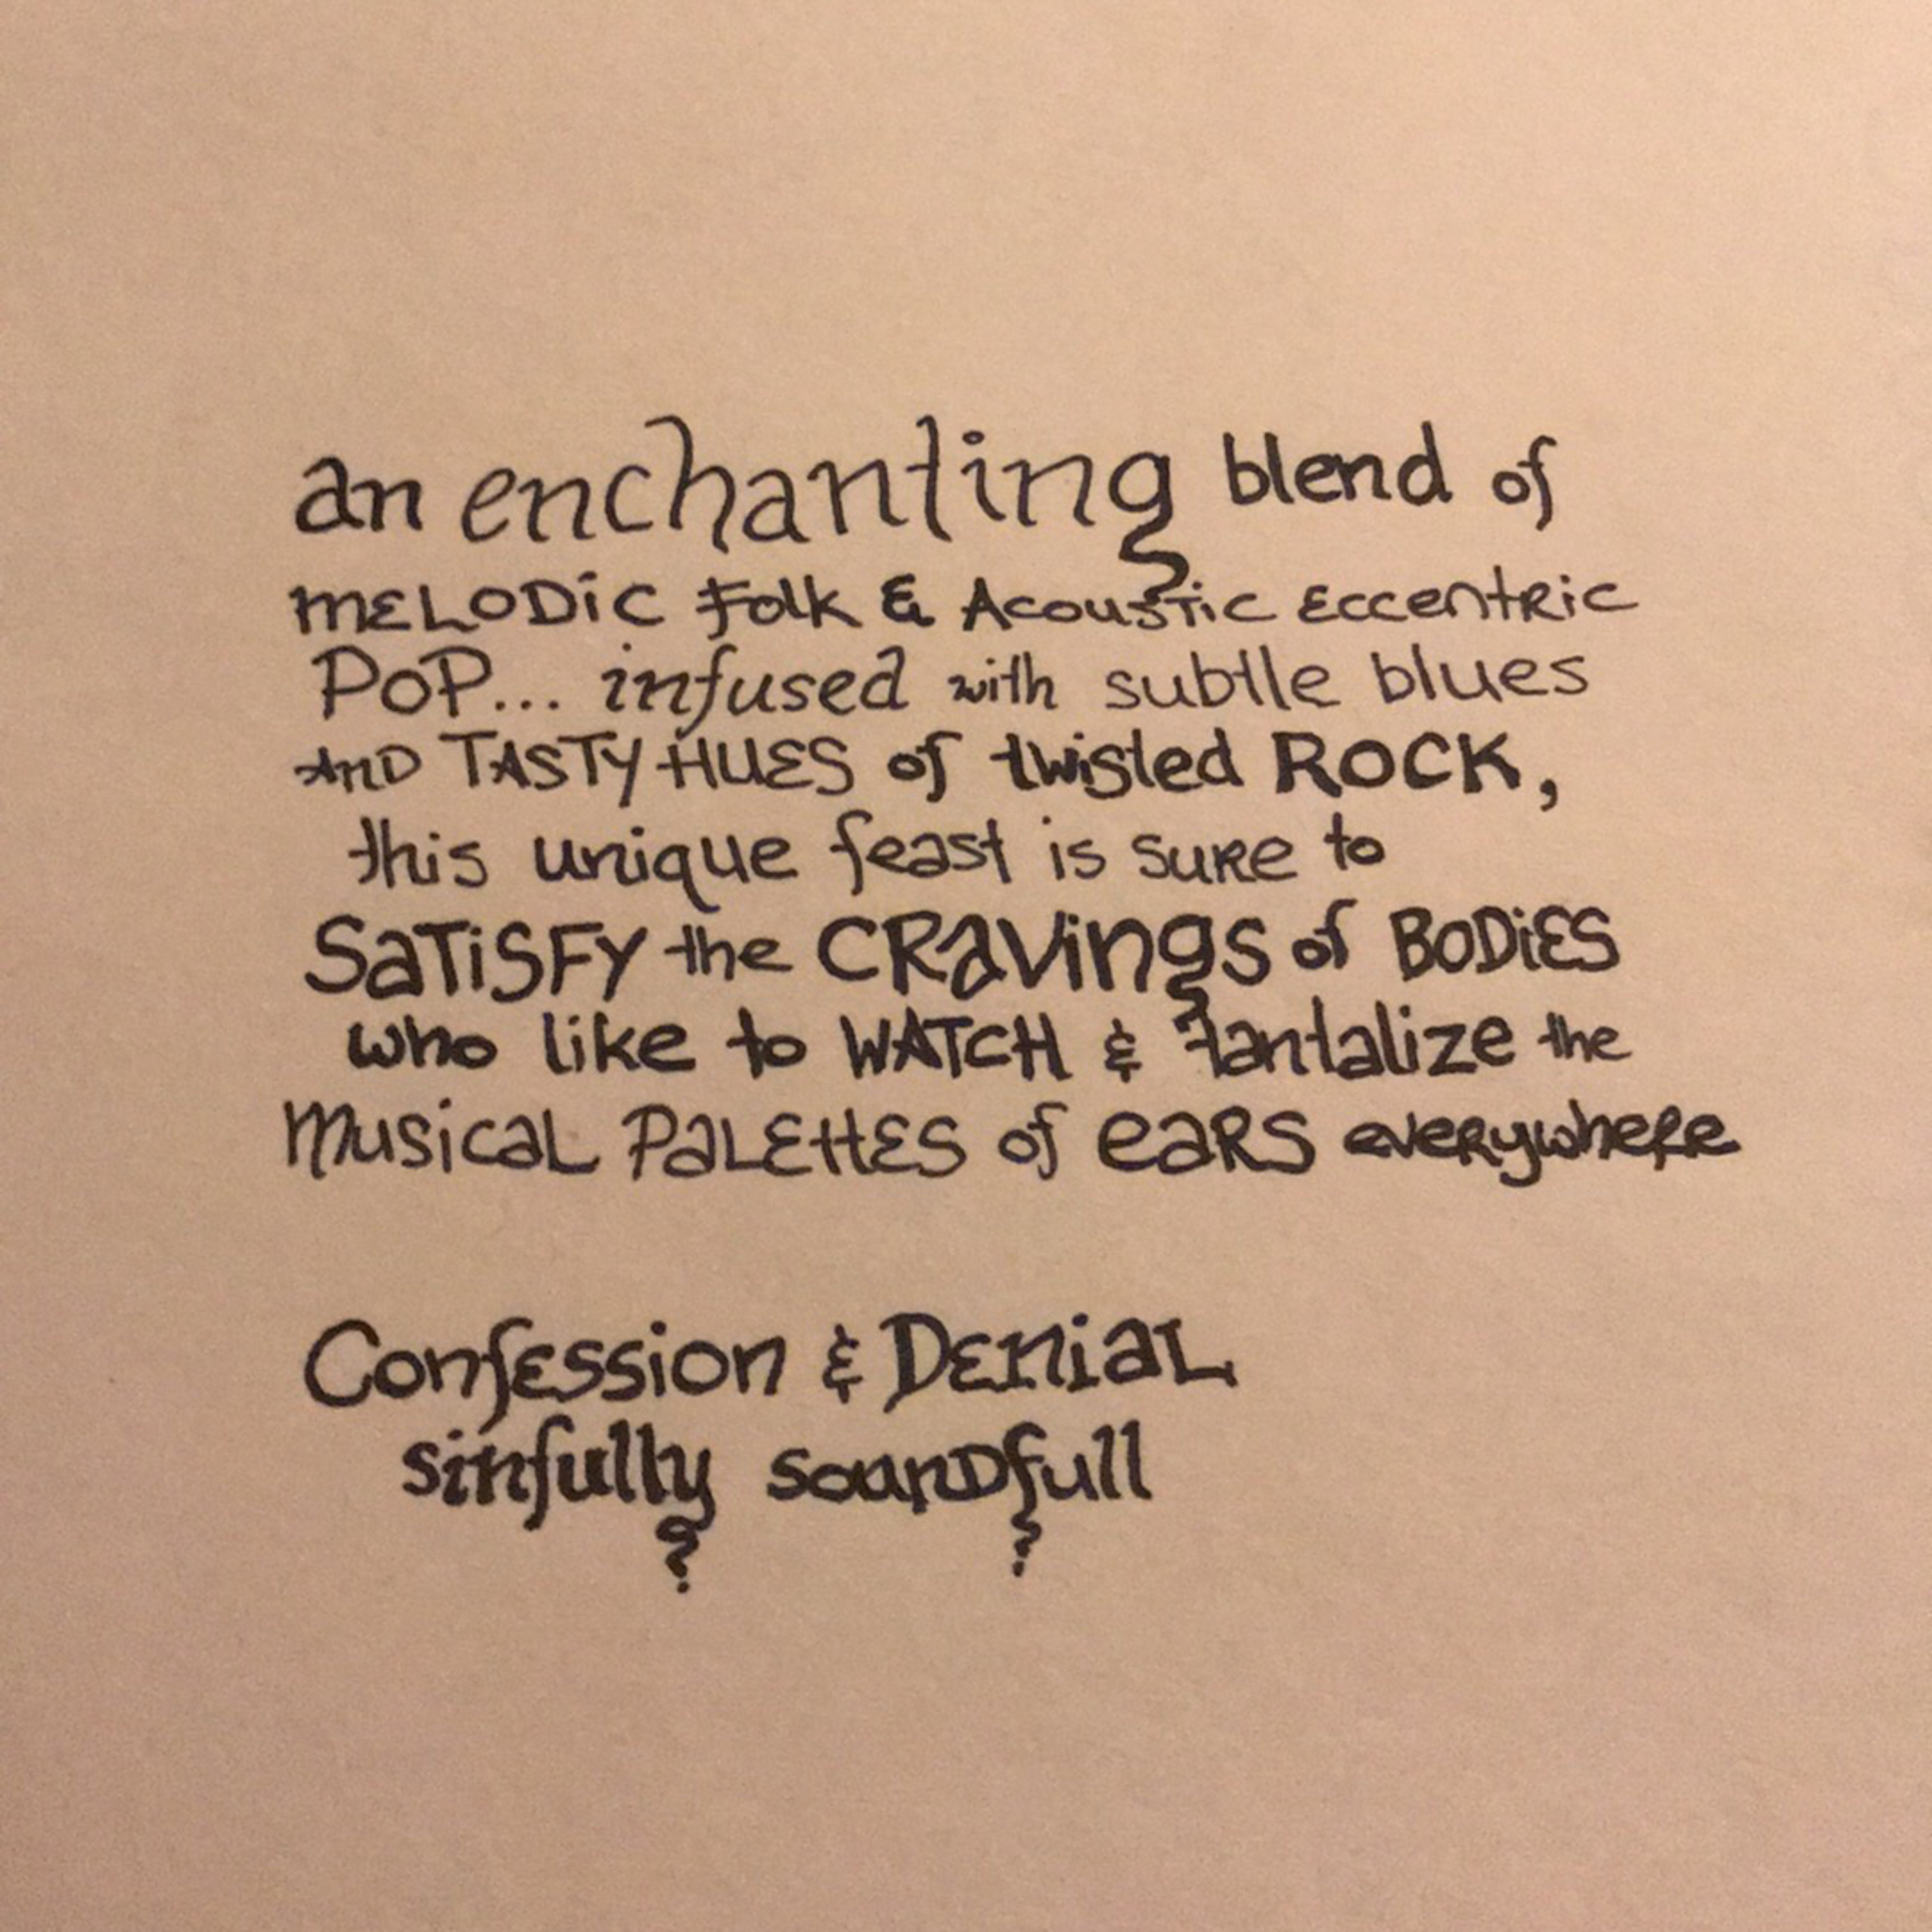 an enchanting blend of
MELODiC Folk & Acoustic Eccentric
POP... infused with subtle blues
AND TASTY HUES of twisted ROCK,
this unique feast is sure to
SaTiSFY the CRavings of BODiES
who like to WATCH & tantalize the
Musical PaLEttES of eaRS everywhere
Confession & DENiaL
sinfully sounDfull
? ?